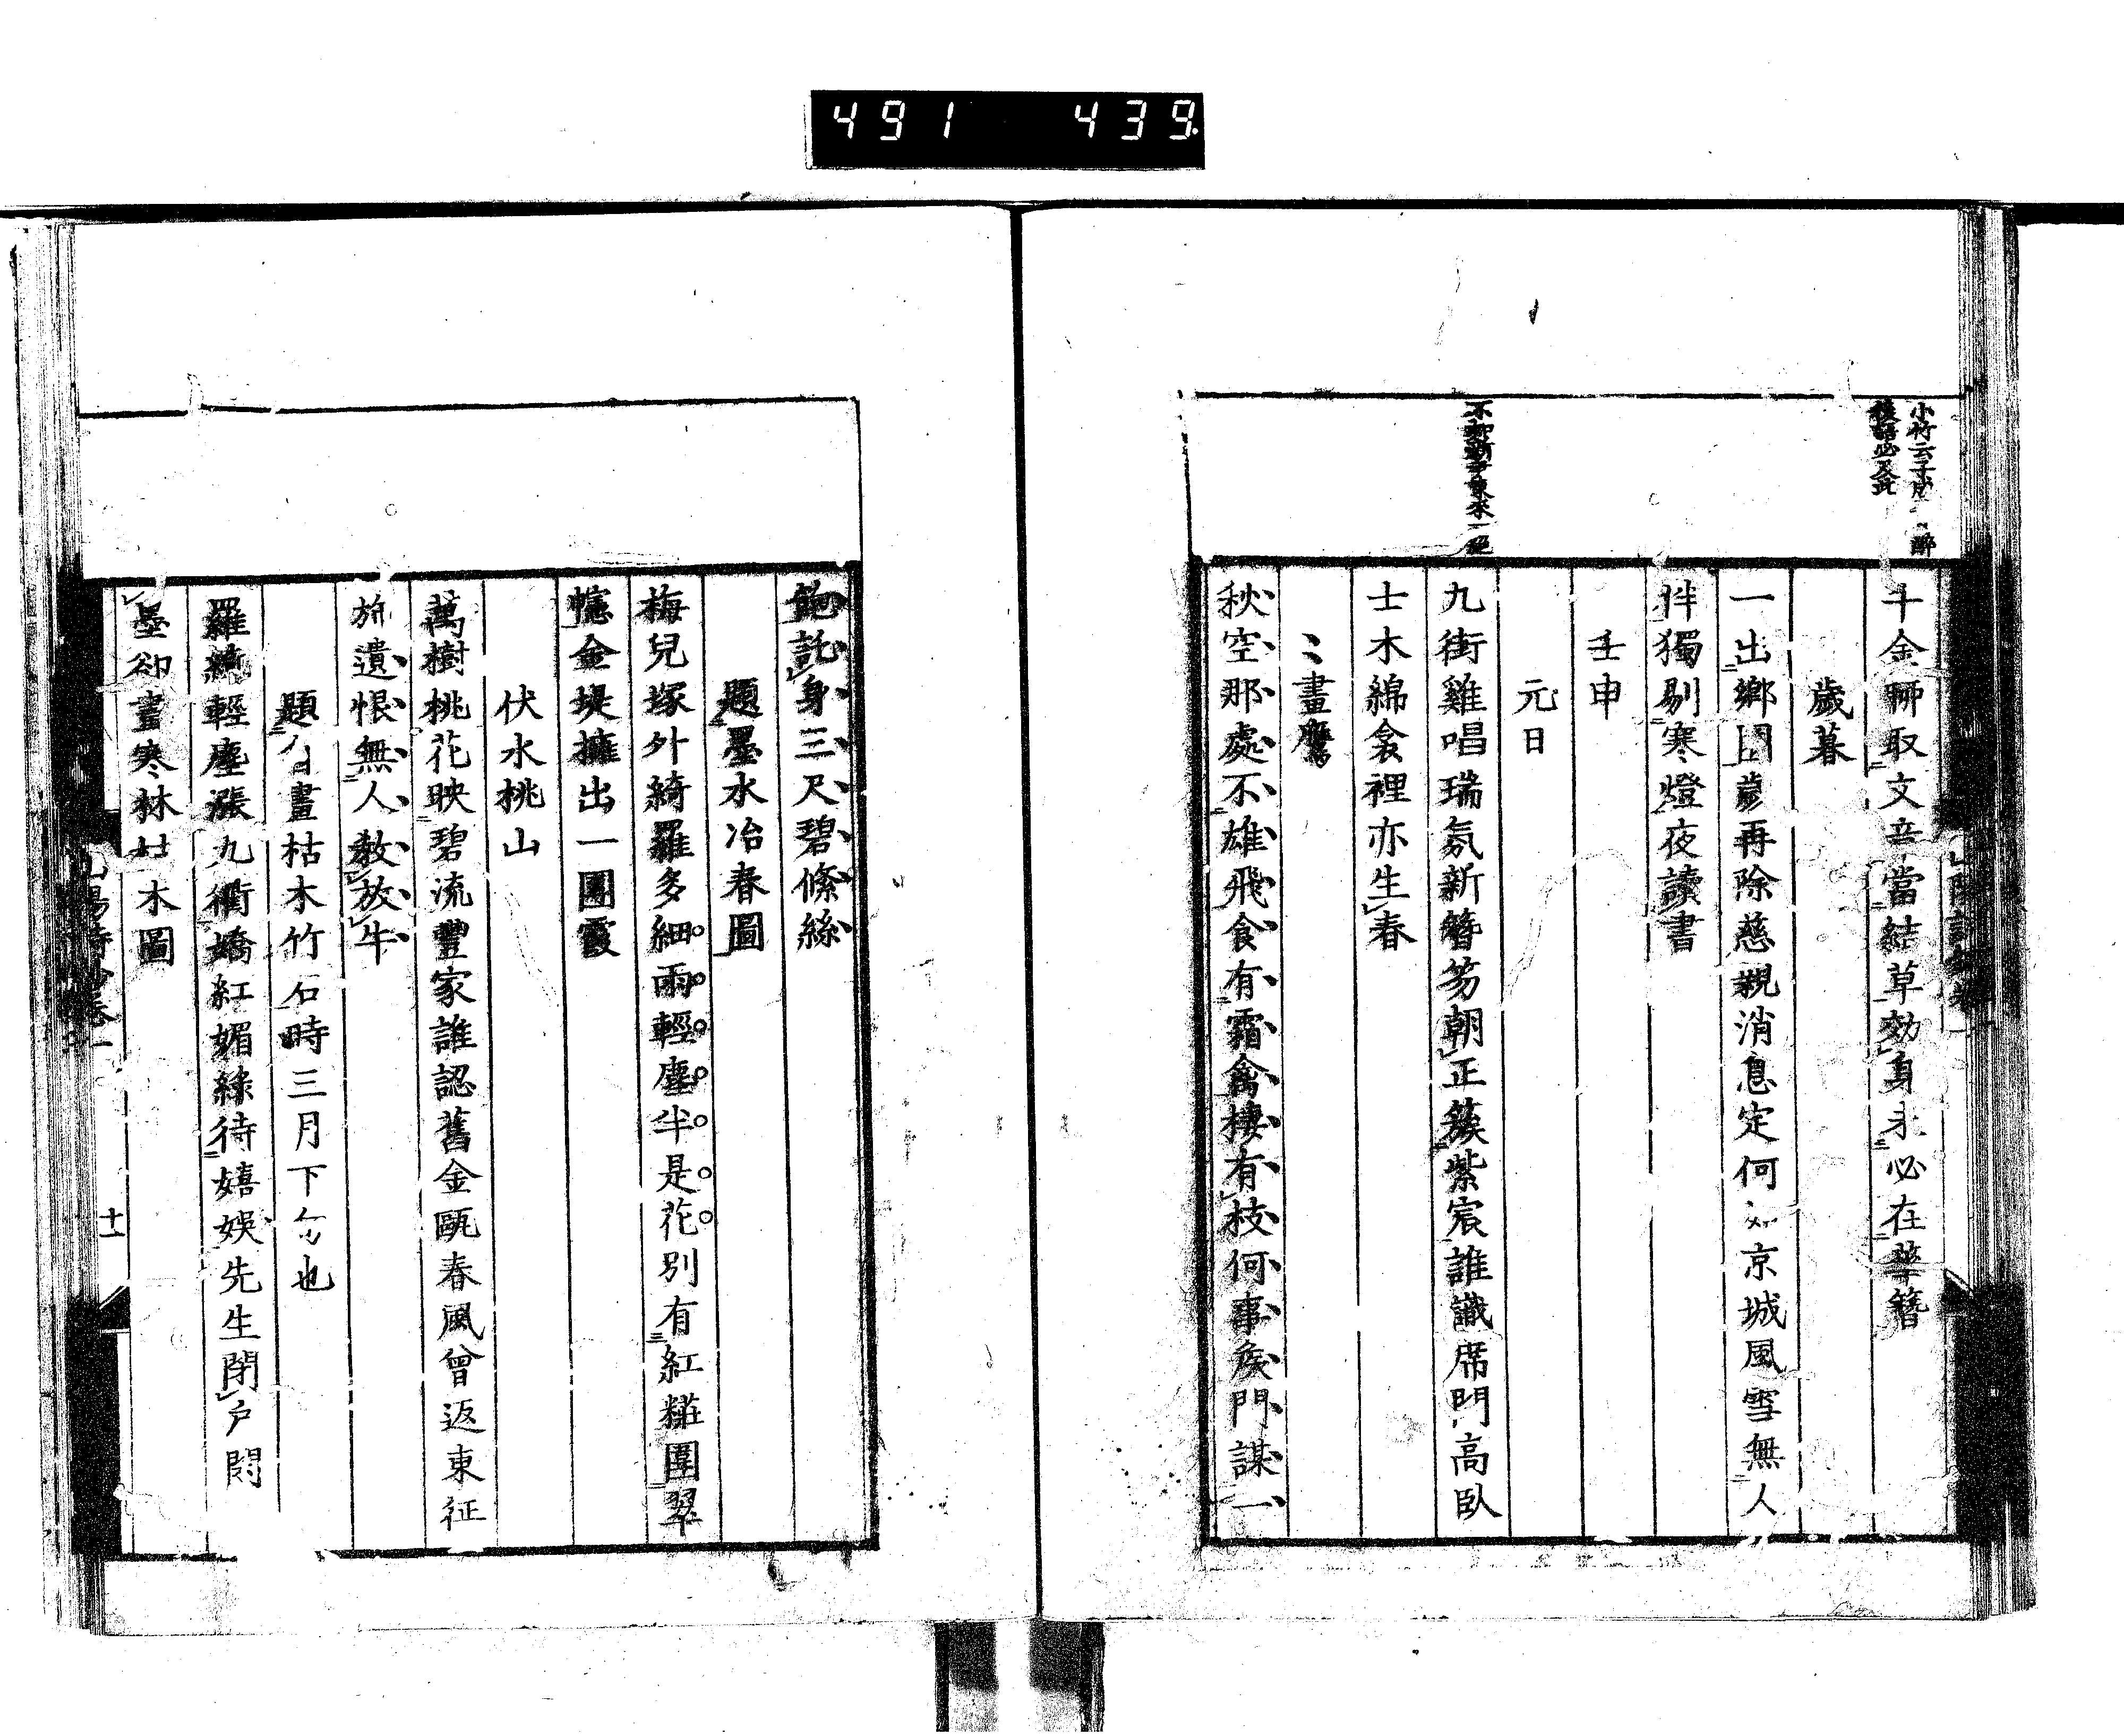 491 439
小竹云子成
後語必及此
千金聊取文章當結草効身未必在華簪
歲暮
一出鄉國歲再除慈親消息定何如京城風雪無人
伴獨剔寒燈夜讀書
壬申
元日
不知新
來一絕
九街雞唱瑞氛新簪笏朝正簇紫宸誰識席門高臥
士木綿衾裡亦生春
畫鷹
秋空那處不雄飛食有霜禽棲有枝何事矦門謀一
飽託身三尺碧絛絲
題墨水冶春圖
梅兒塚外綺羅多細雨輕塵半是花別有紅糚圍翠
幰金堤擁出一團霞
伏水桃山
萬樹桃花映碧流豐家誰認舊金甌春風曾返東征
旆遺恨無人敎放牛
題自畫枯木竹石時三月下旬也
羅綺輕塵漲九衢嬌紅媚綠待嬉娛先生閉戶閑
墨卻畫寒林枯木圖
山陽詩鈔卷一
十一